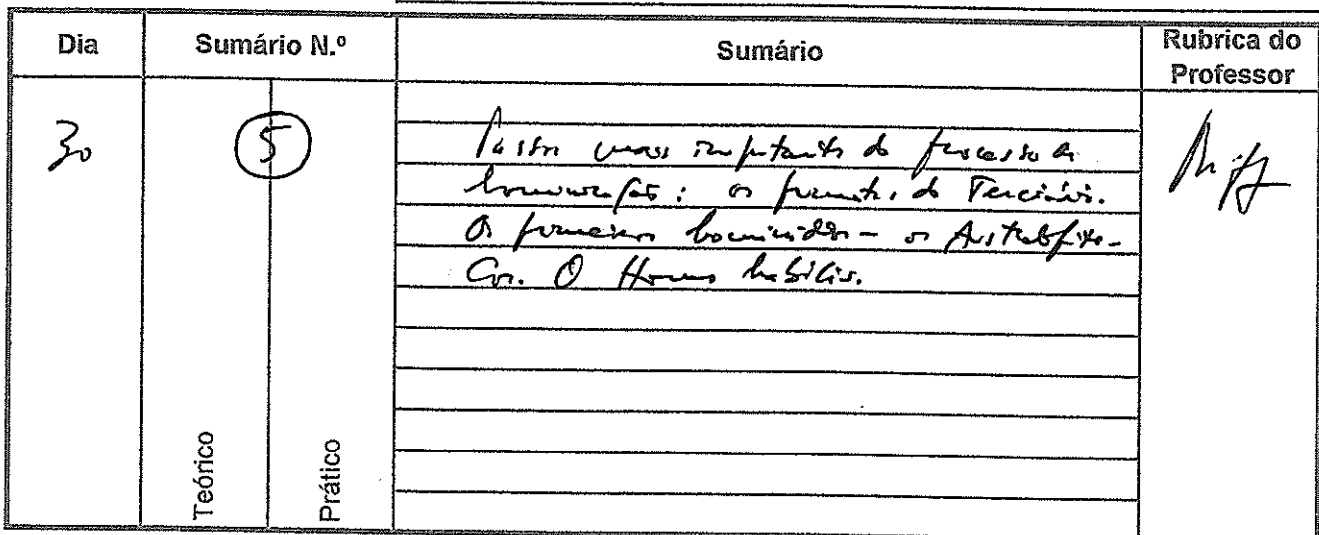 Dia
Sumário N.º
Sumário
Rubrica do
Professor
30
5
Passos mais importantes do processo de
hominização: os primatas do Terciário.
Os primeiros hominídeos - os Australopite-
cos. O Homo habilis.
Teórico
Prático